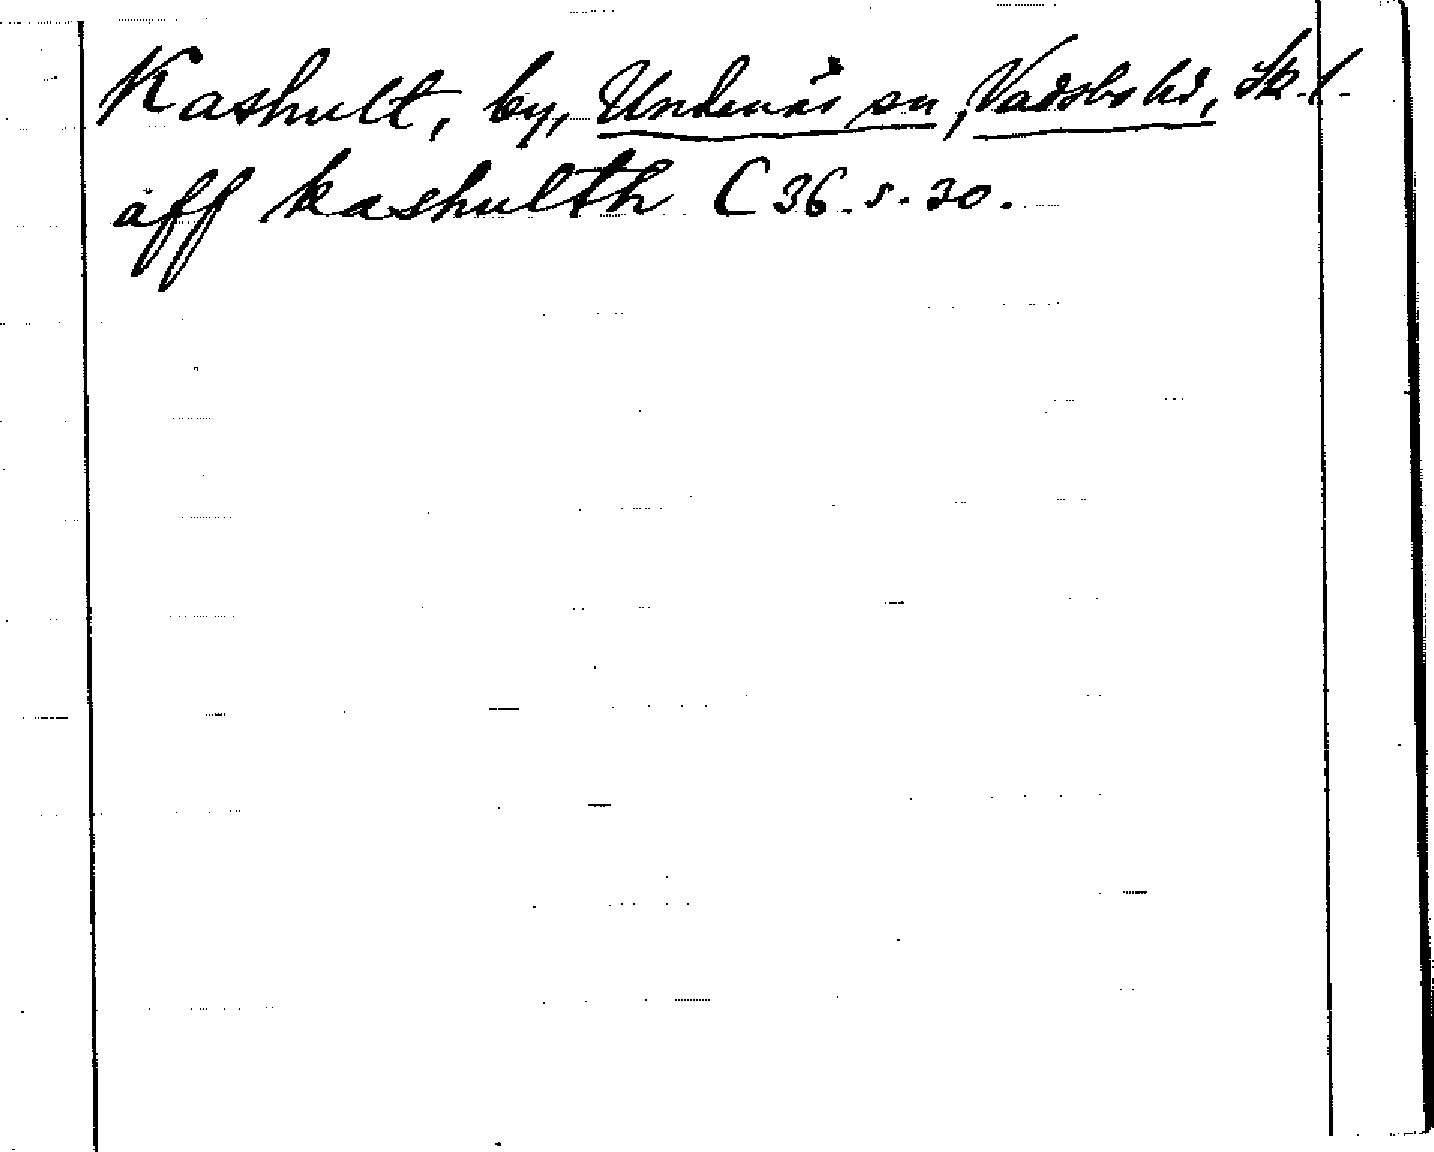 Kashult, by, Undenäs sn, Vadsbo hd, Sk. l.
aff kashulth C 36 s. 30.